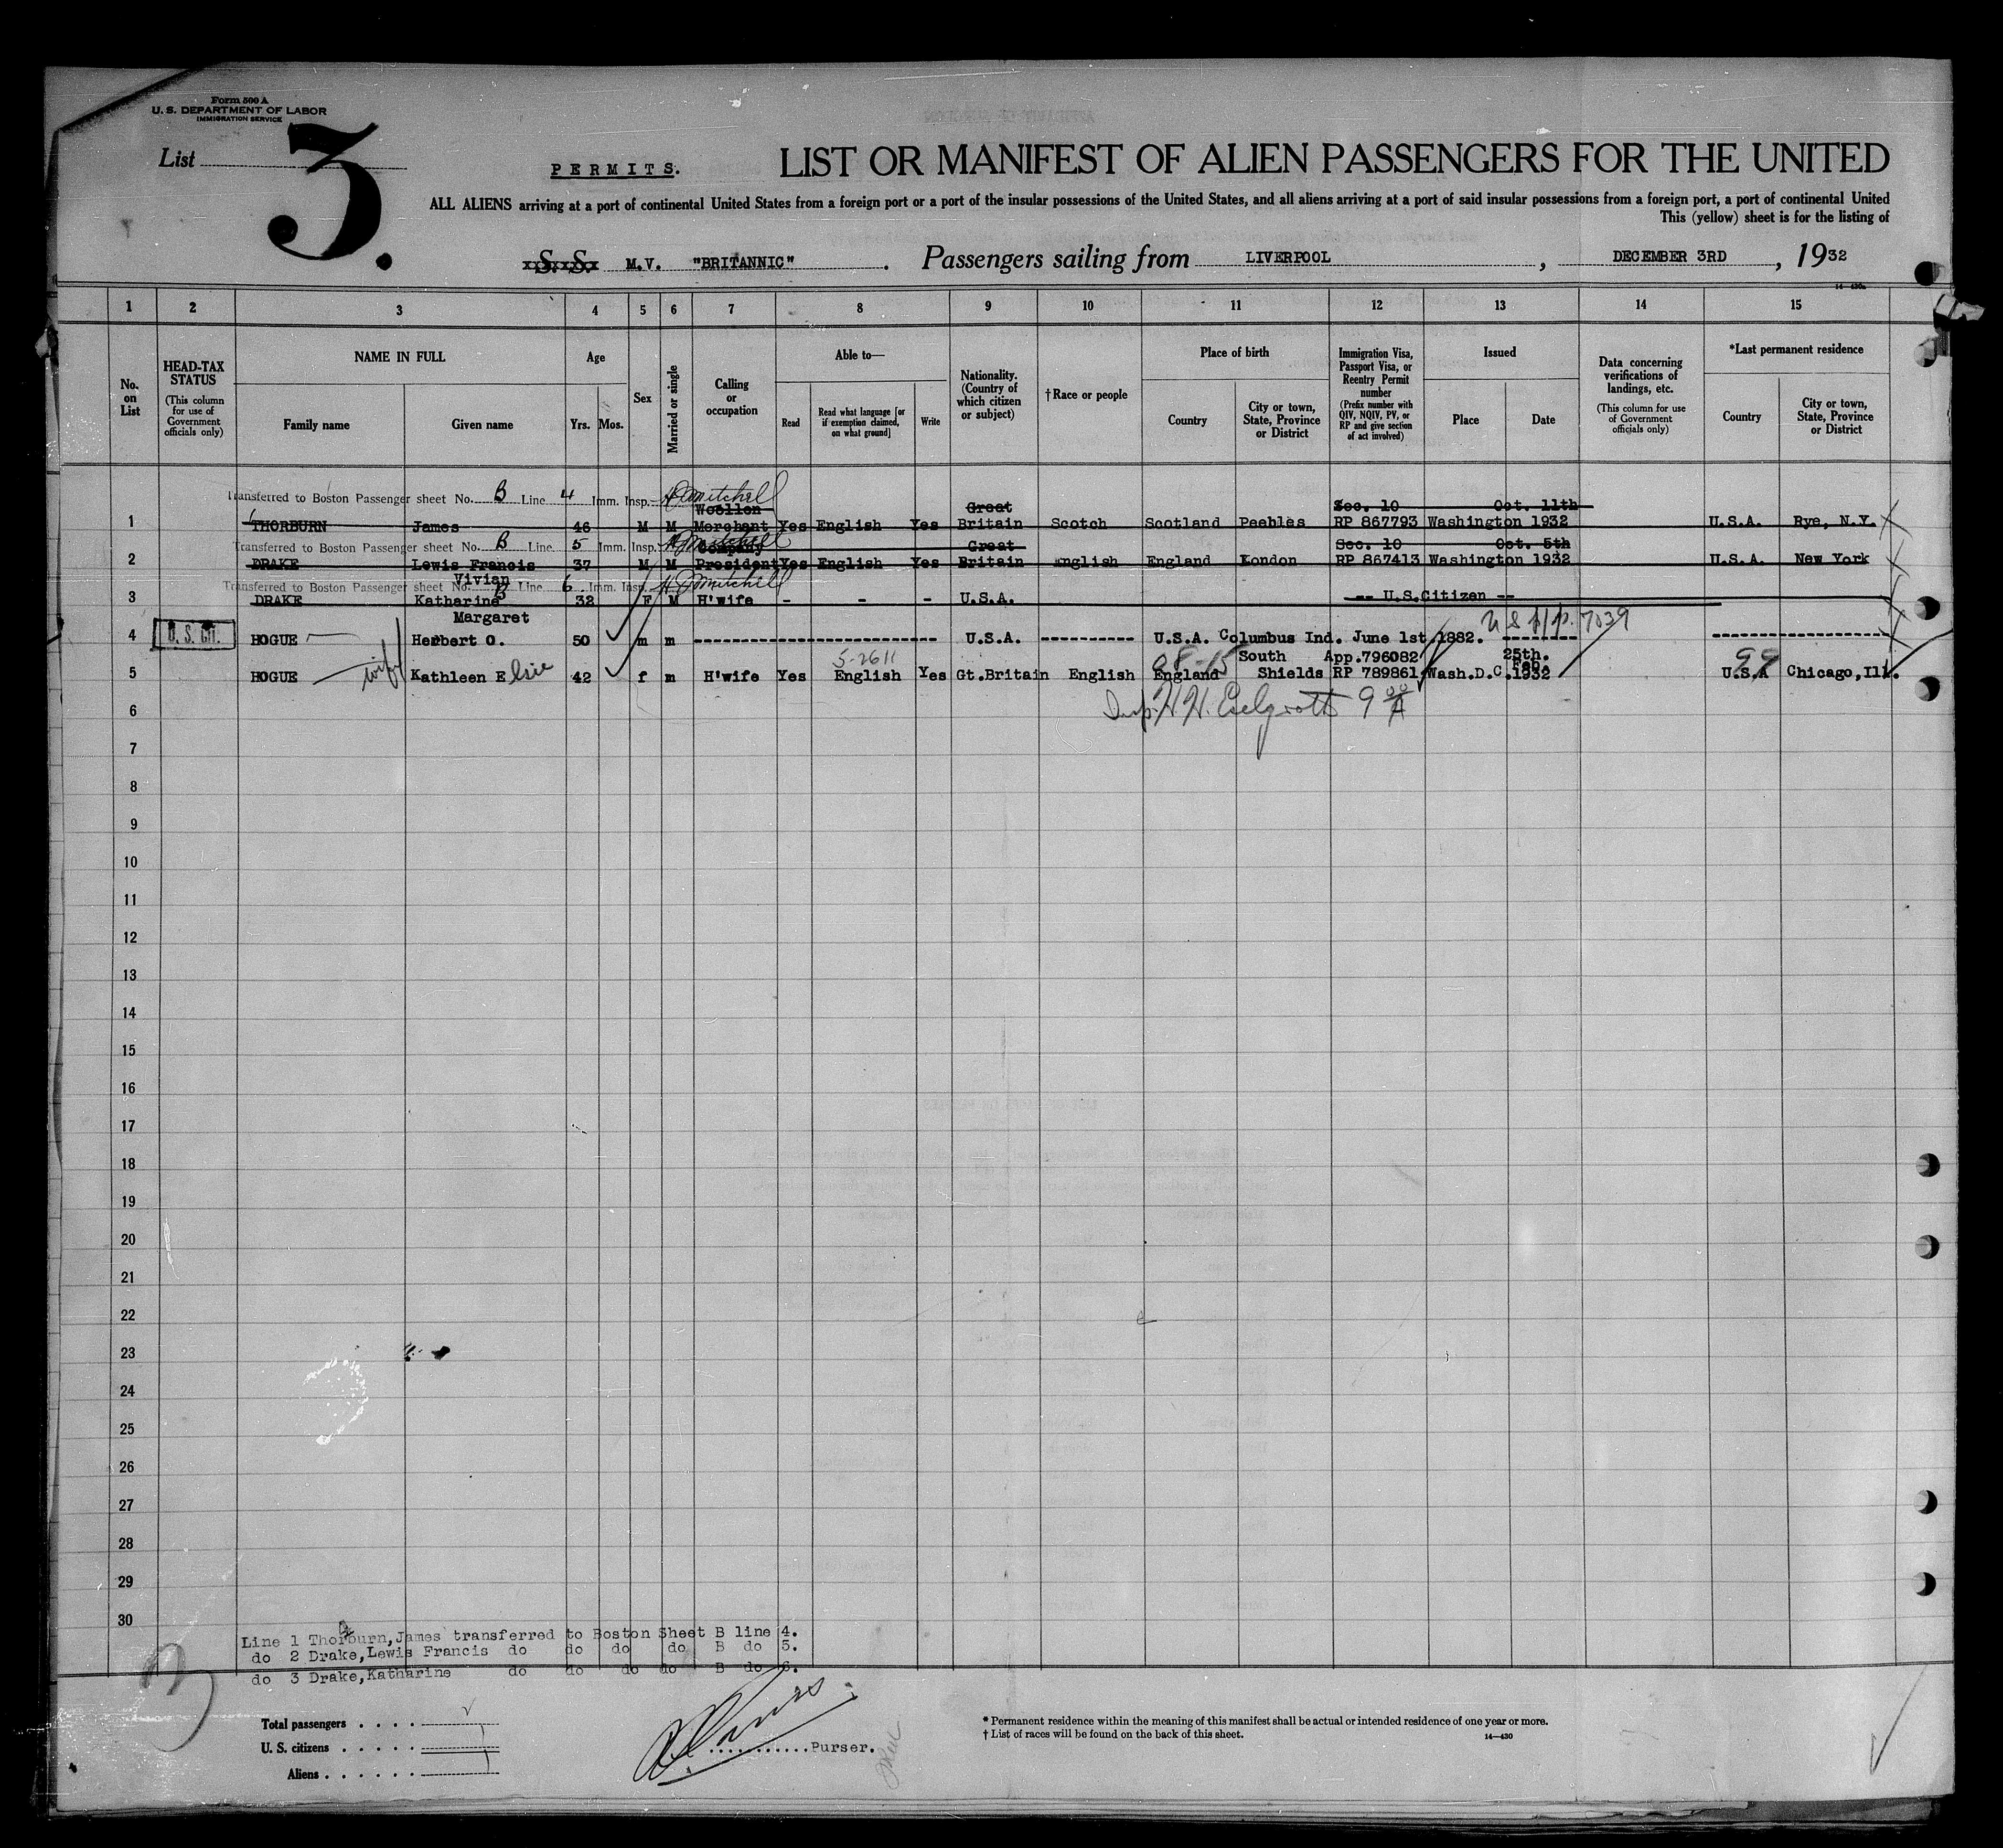 Form 500 A
U. S. DEPARTMENT OF LABOR
IMMIGRATION SERVICE
List 3.
PERMITS.
LIST OR MANIFEST OF ALIEN PASSENGERS FOR THE UNITED
ALL ALIENS arriving at a port of continental United States from a foreign port or a port of the insular possessions of the United States, and all aliens arriving at a port of said insular possessions from a foreign port, a port of continental United
This (yellow) sheet is for the listing of
S. S. M.V. "BRITANNIC" . Passengers sailing from LIVERPOOL , DECEMBER 3RD , 1932
1 2 3 4 5 6 7 8 9 10 11 12 13 14 15
No. on List
HEAD-TAX STATUS
(This column for use of Government officials only)
NAME IN FULL
Family name Given name
Age
Yrs. Mos.
Sex
Married or single
Calling or occupation
Able to—
Read
Read what language [or if exemption claimed, on what ground]
Write
Nationality. (Country of which citizen or subject)
†Race or people
Place of birth
Country
City or town, State, Province or District
Immigration Visa, Passport Visa, or Reentry Permit number
(Prefix number with QIV, NQIV, PV, or RP and give section of act involved)
Issued
Place Date
Data concerning verifications of landings, etc.
(This column for use of Government officials only)
*Last permanent residence
Country
City or town, State, Province or District
Transferred to Boston Passenger sheet No. B Line 4 Imm. Insp. Mitchell
Woollen Great Sec. 10 Oct. 11th
1 THORBURN James 46 M M Merchant Yes English Yes Britain Scotch Scotland Peebles RP 867793 Washington 1932 U.S.A. Rye, N.Y.
Transferred to Boston Passenger sheet No. B Line 5 Imm. Insp. Mitchell
Company Great Sec. 10 Oct. 5th
2 DRAKE Lewis Francis 37 M M President Yes English Yes Britain English England London RP 867413 Washington 1932 U.S.A. New York
Vivian
Transferred to Boston Passenger sheet No. B Line 6 Imm. Insp. Mitchell
3 DRAKE Katharine 32 F M H'wife - - - U.S.A. -- U.S.Citizen --
Margaret
4 U. S. Cit. HOGUE Herbert O. 50 m m U.S.A. U.S.A. Columbus Ind. June 1st, 1882. U S P/p. 7039
5-2611 South App.796082 25th. Feb. 99
5 HOGUE wife Kathleen Elsie 42 f m H'wife Yes English Yes Gt.Britain English England Shields RP 789861 Wash.D.C. 1932 U.S.A Chicago, Ill.
6
7
8
9
10
11
12
13
14
15
16
17
18
19
20
21
22
23
24
25
26
27
28
29
30
Line 1 Thorburn,James transferred to Boston Sheet B line 4.
do 2 Drake,Lewis Francis do do do do B do 5.
do 3 Drake,Katharine do do do do B do 6.
Total passengers
U. S. citizens
Aliens
Purser.
* Permanent residence within the meaning of this manifest shall be actual or intended residence of one year or more.
† List of races will be found on the back of this sheet.
14—430